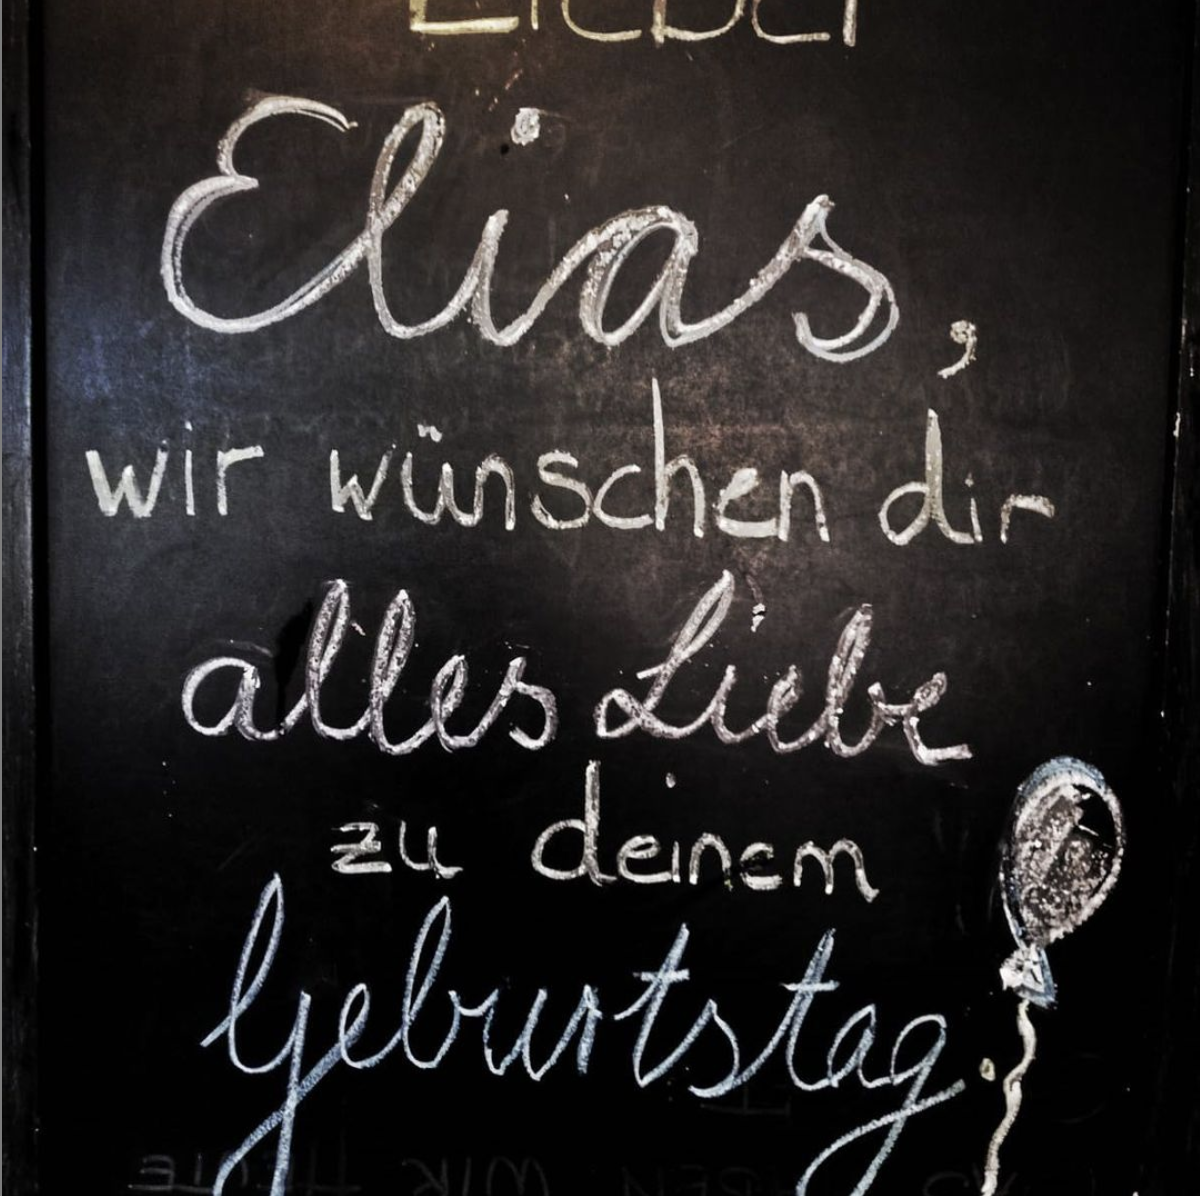 Lieber
Elias,
wir wünschen dir
alles Liebe
zu deinem
Geburtstag.